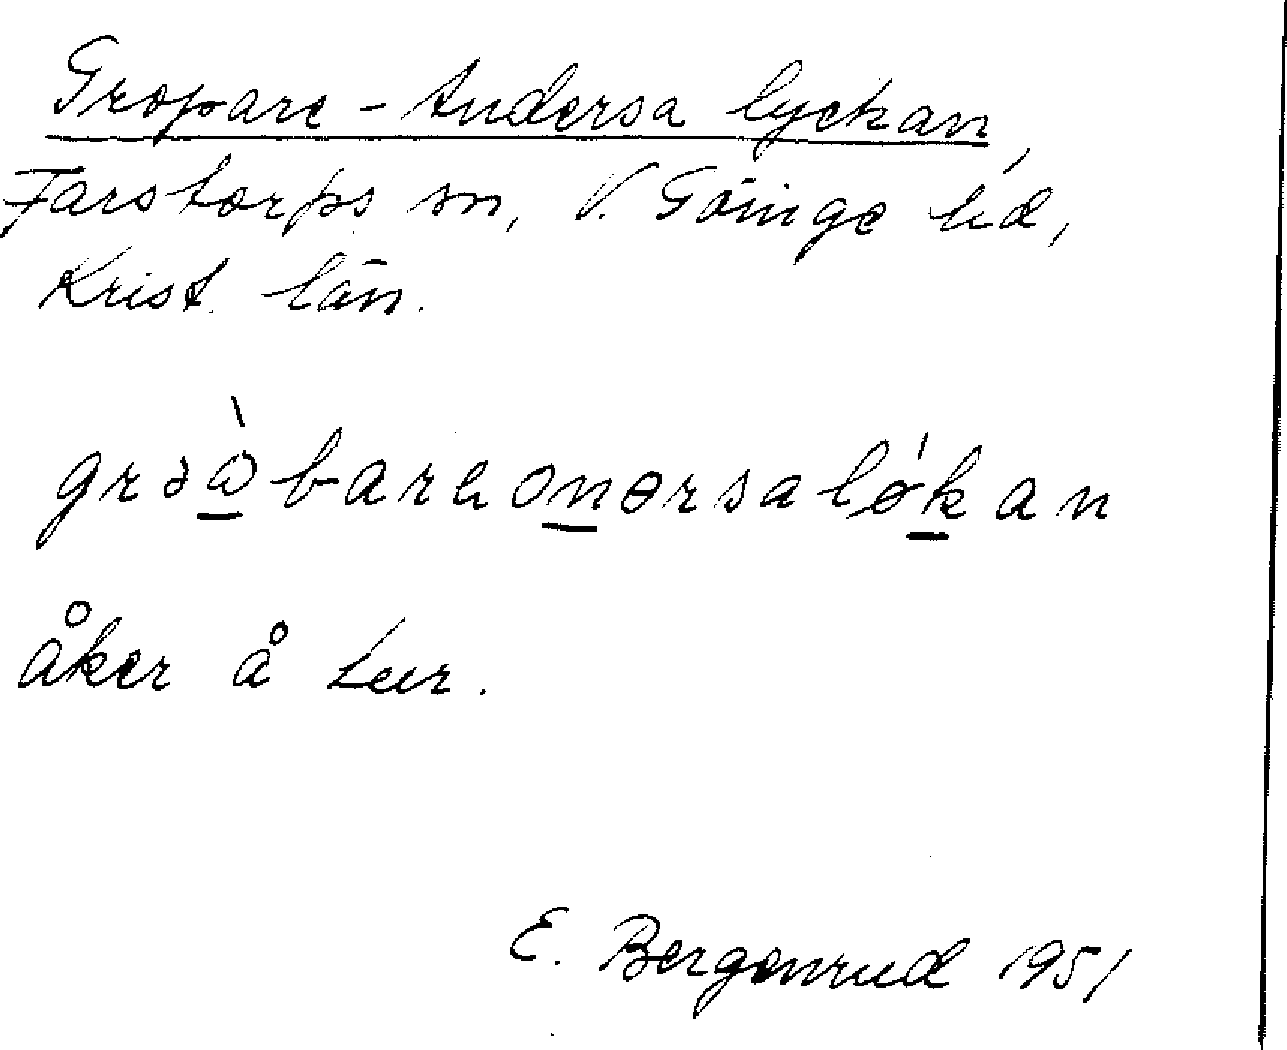 Gropare-Andersa lyckan,
Farstorps sn, V. Göinge hd,
Krist. län.
grəàbarhonərsaløkan
åker å Lur.
E. Bergenrud 1951